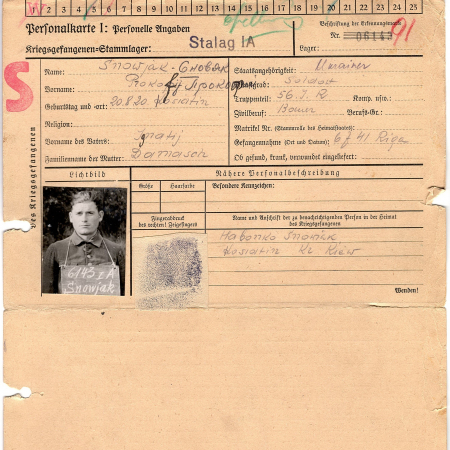 1 2 3 4 5 6 7 8 9 10 11 12 13 14 15 16 17 18 19 20 21 22 23 24 25
Personalkarte I: Personelle Angaben
Beschriftung der Erkennungsmarke
Kriegsgefangenen-Stammlager: Stalag IA
Nr. 06143
Lager:
91
S
Des Kriegsgefangenen
Name: Snowjak - Сновяк
Vorname: Прокоп
Geburtstag und -ort: 20.8.20 Kosiatin
Religion:
Vorname des Vaters: Ignatij
Familienname der Mutter:
Staatsangehörigkeit: Ukrainer
Dienstgrad: Soldat
Truppenteil: 56 I.R. Komp. usw.:
Zivilberuf: Bauer Berufs-Gr.:
Matrikel Nr. (Stammrolle des Heimatstaates):
Gefangennahme (Ort und Datum): 6/7 41 Riga
Ob gesund, krank, verwundet eingeliefert:
Lichtbild
Nähere Personalbeschreibung
Größe
Haarfarbe
Besondere Kennzeichen:
Fingerabdruck
des rechten! Zeigefingers
Name und Anschrift der zu benachrichtigenden Person in der Heimat
des Kriegsgefangenen
Kosiatin Kr. Kiew
6143 I A
Snowjak
Wenden!